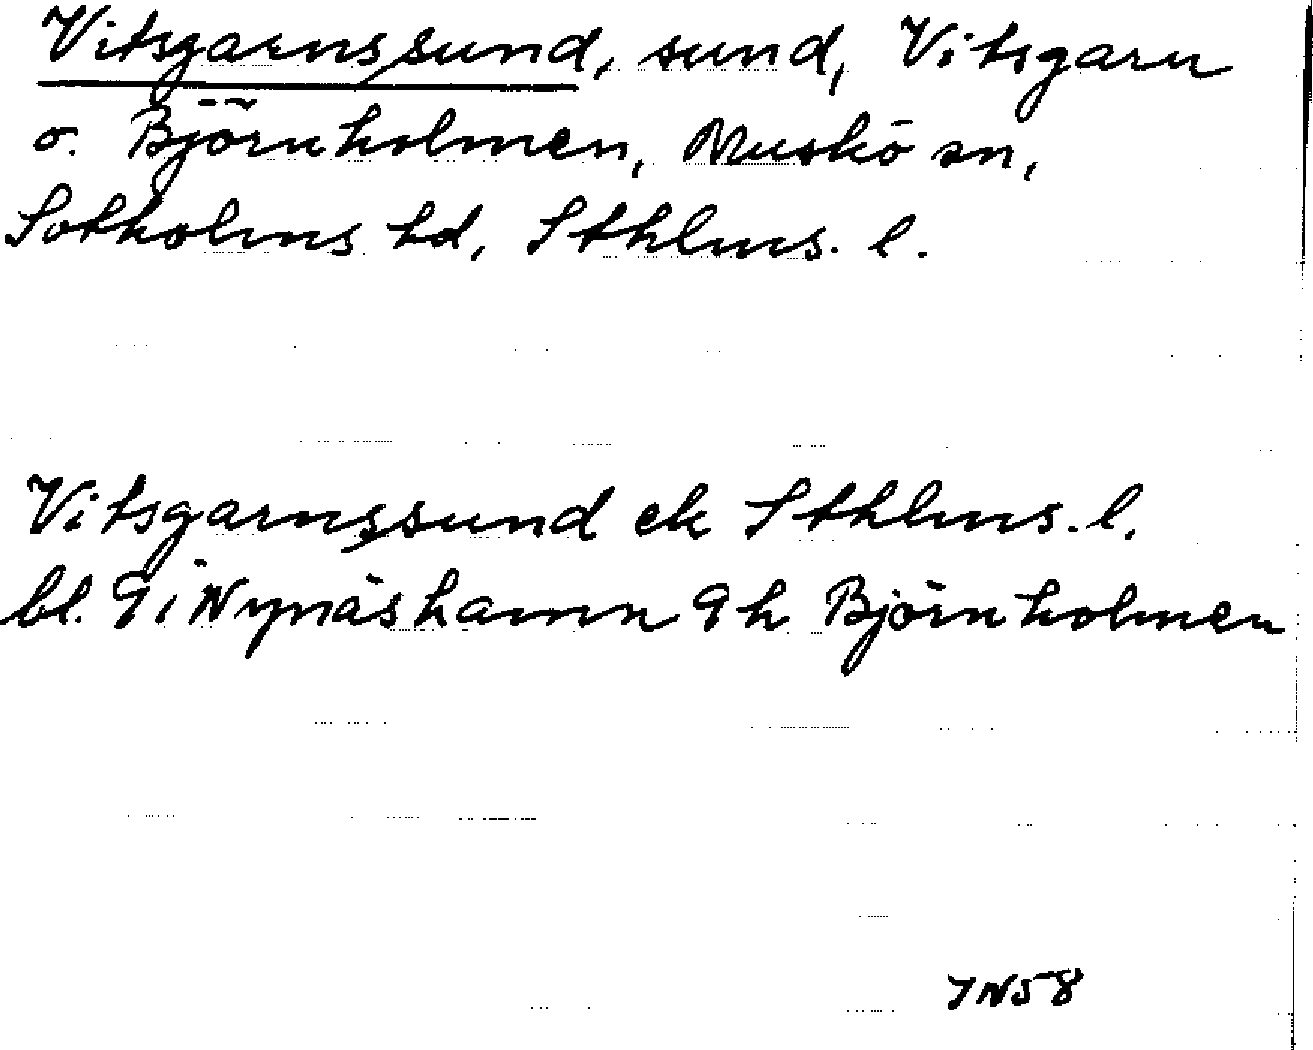 Vitsgarnssund, sund, Vitsgarn
o. Björnholmen, Muskö sn,
Sotholms hd, Sthlms. l.
Vitsgarnssund ek Sthlms. l.
bl. 9i Nynäshamn 9h Björnholmen
7N58